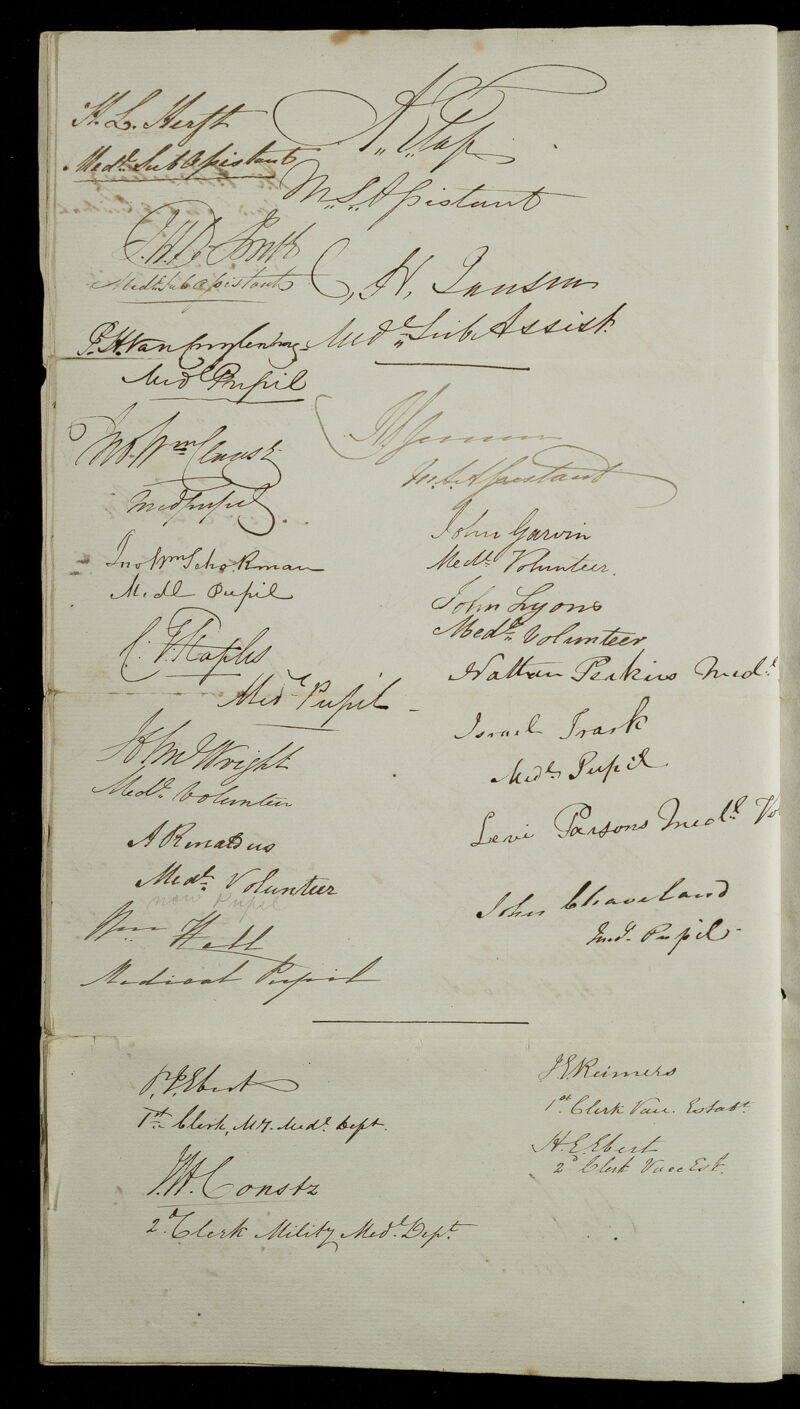 H. L. Herft
Medl. Sub Assistant
Medl. Sub Assistant
P. H. Van Cuylenburg
Medl. Pupil
Jno. Wm
Med pupil
Jno Wm Schokman
Medl Pupil
C. F. Staples
Medl Pupil
H. Wright
Medl. Volunteer
A Rinaldus
Medl. Volunteer
now Pupil
Wm Hall
Medical Pupil
M. S. Assistant
C. H. Jansen
Medl. Sub Assist.
M. S. Assistant
John Garvin
Medl. Volunteer.
John Lyons
Medl. Volunteer
Nathan Perkins Medl.
Israel Trask
Medl. Pupil
Levi Parsons Medl. Vo
John Cleaveland
Medl. Pupil
P. P. Ebert
1st Clerk, My. Medl. Dept.
Constz
2d. Clerk Mility. Medl. Dept.
J E Reimers
1st. Clerk Vacc. Establt.
H. E. Ebert
2d Clerk Vacc Est.